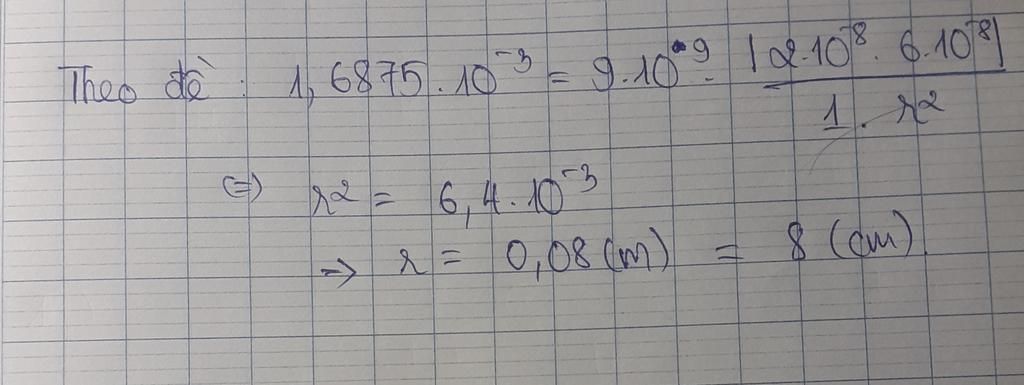 Theo đề : 1,6875.10⁻³ = 9.10⁹. |2.10⁻⁸. 6.10⁻⁸| / 1. r²
⇔ r² = 6,4.10⁻³
⇒ r = 0,08 (m) = 8 (cm)